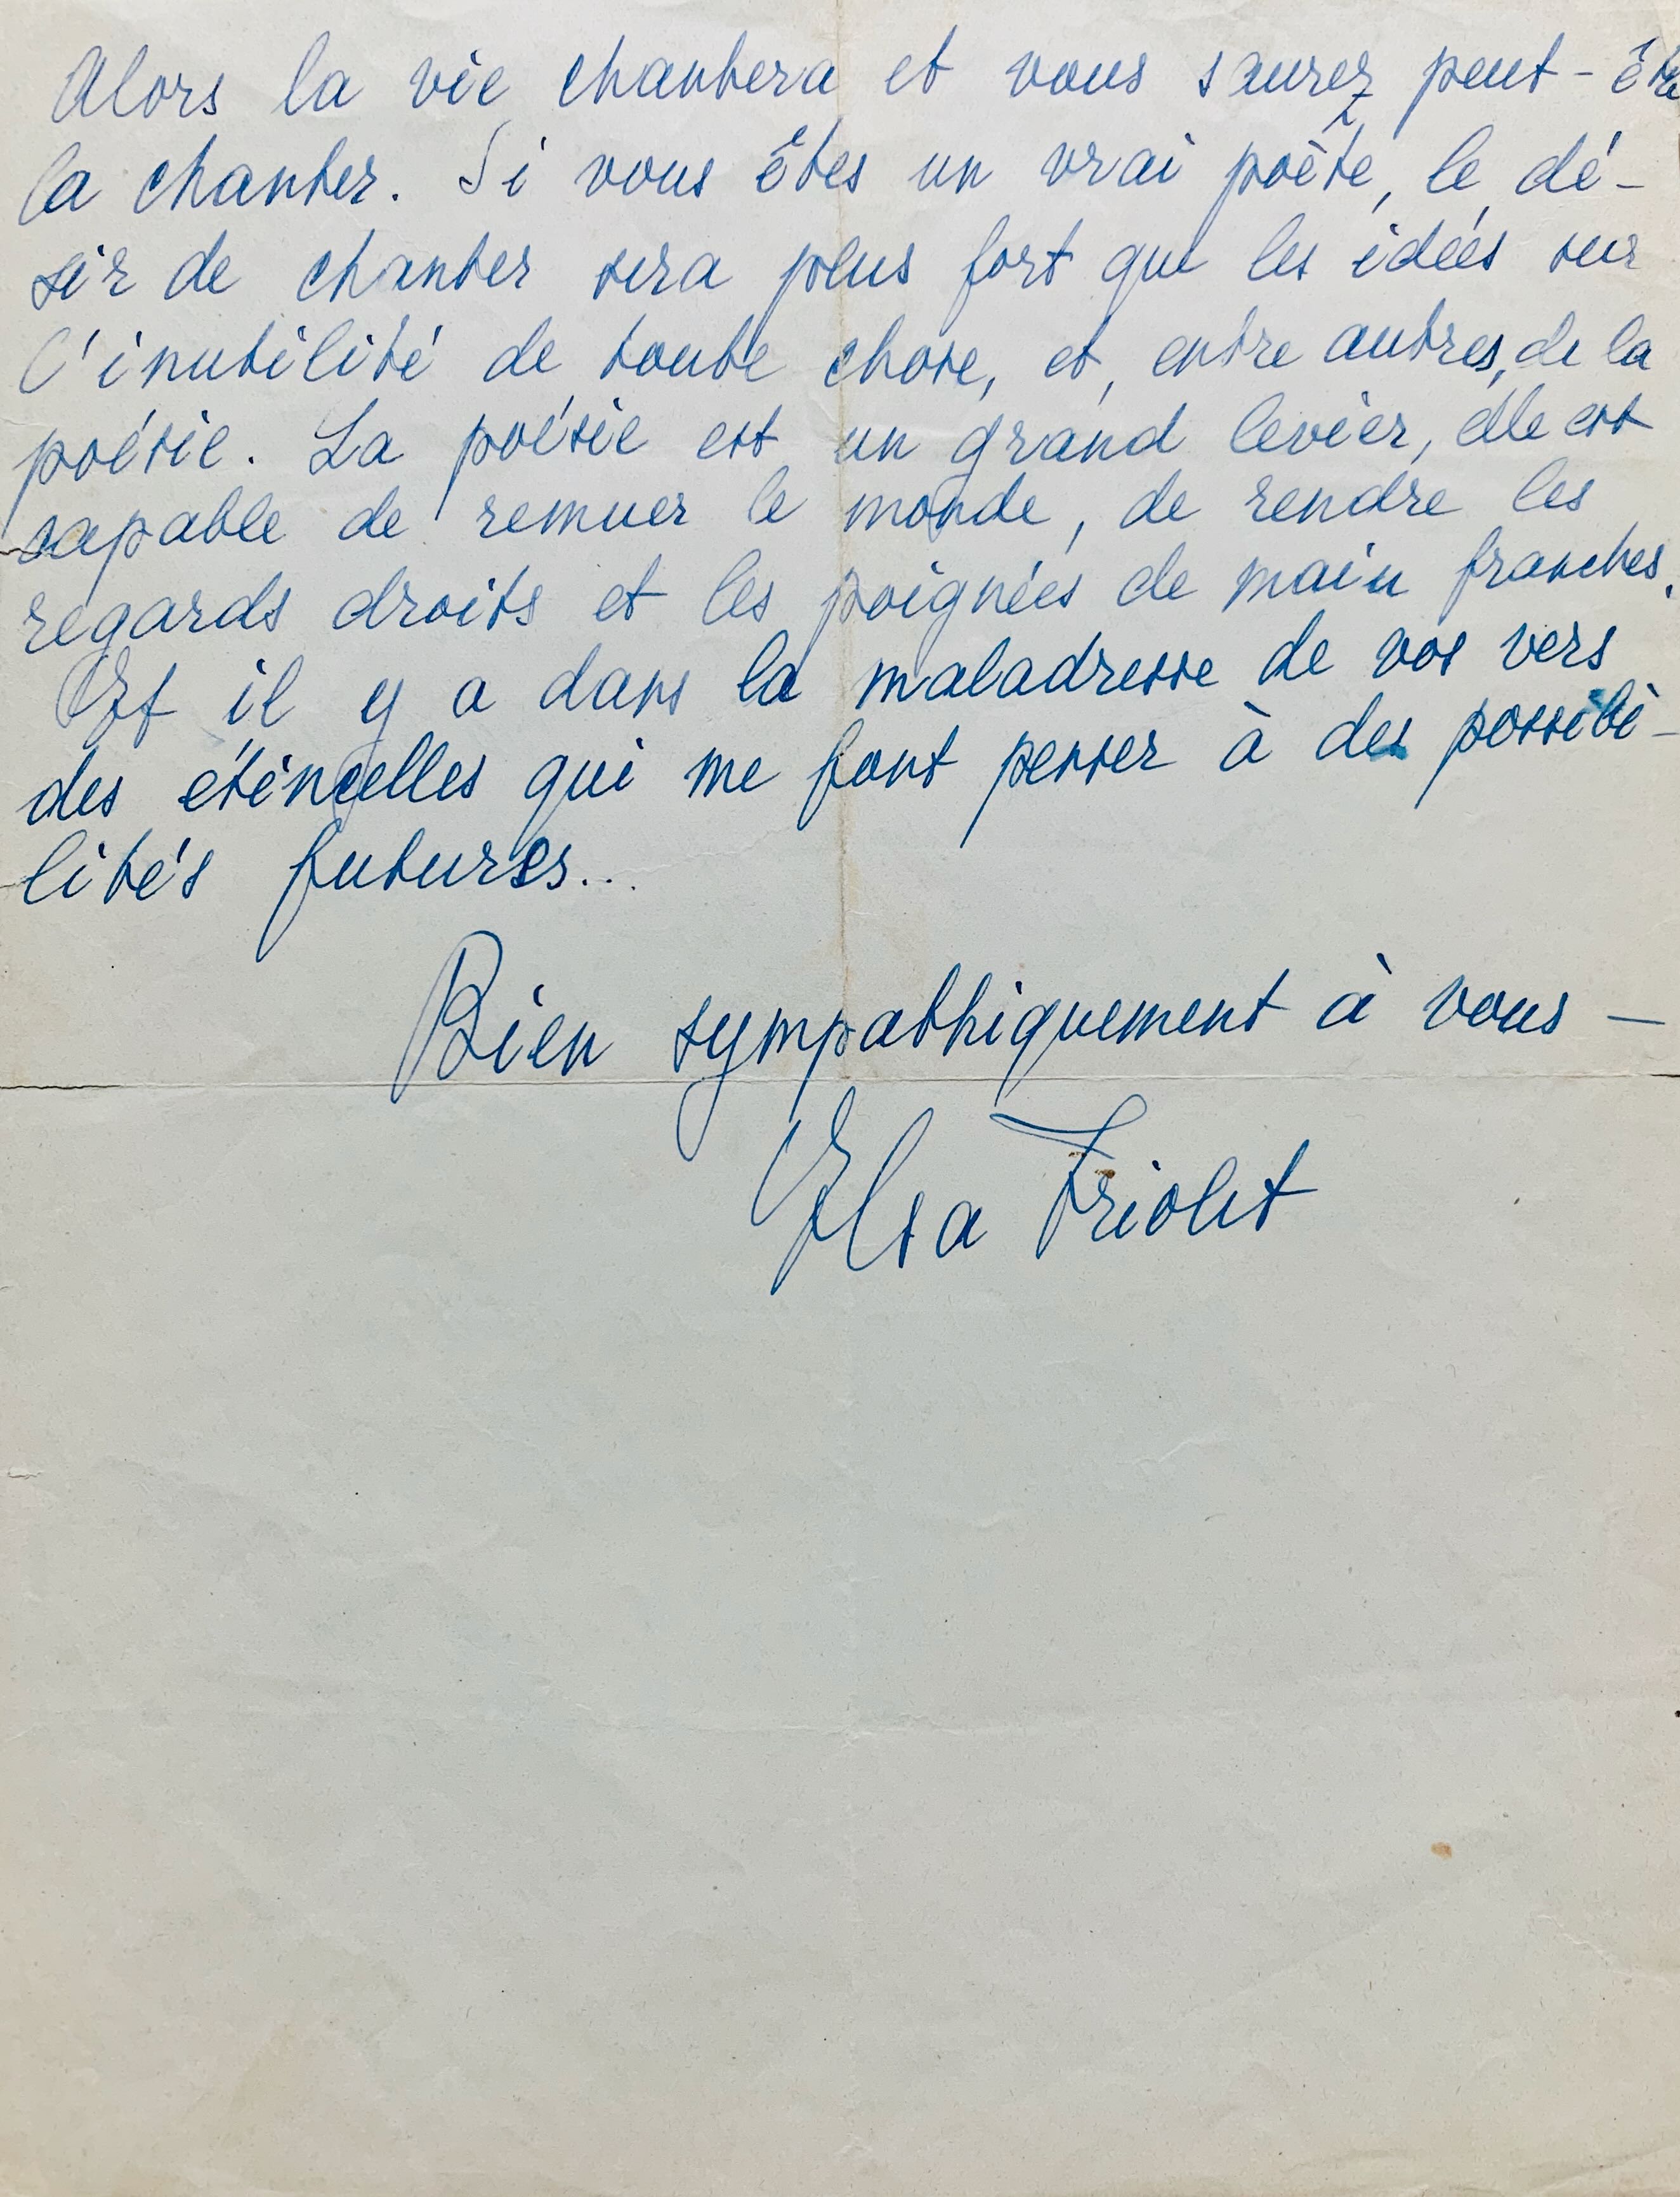 Alors la vie chantera et vous saurez peut-être
la chanter. Si vous êtes un vrai poète, le dé-
sir de chanter sera plus fort que les idées sur
l'inutilité de toute chose, et, entre autres, de la
poésie. La poésie est un grand levier, elle est
capable de remuer le monde, de rendre les
regards droits et les poignées de main franches.
Et il y a dans la maladresse de vos vers
des étincelles qui me font penser à des possibi-
lités futures...
Bien sympathiquement à vous —
Elsa Triolet